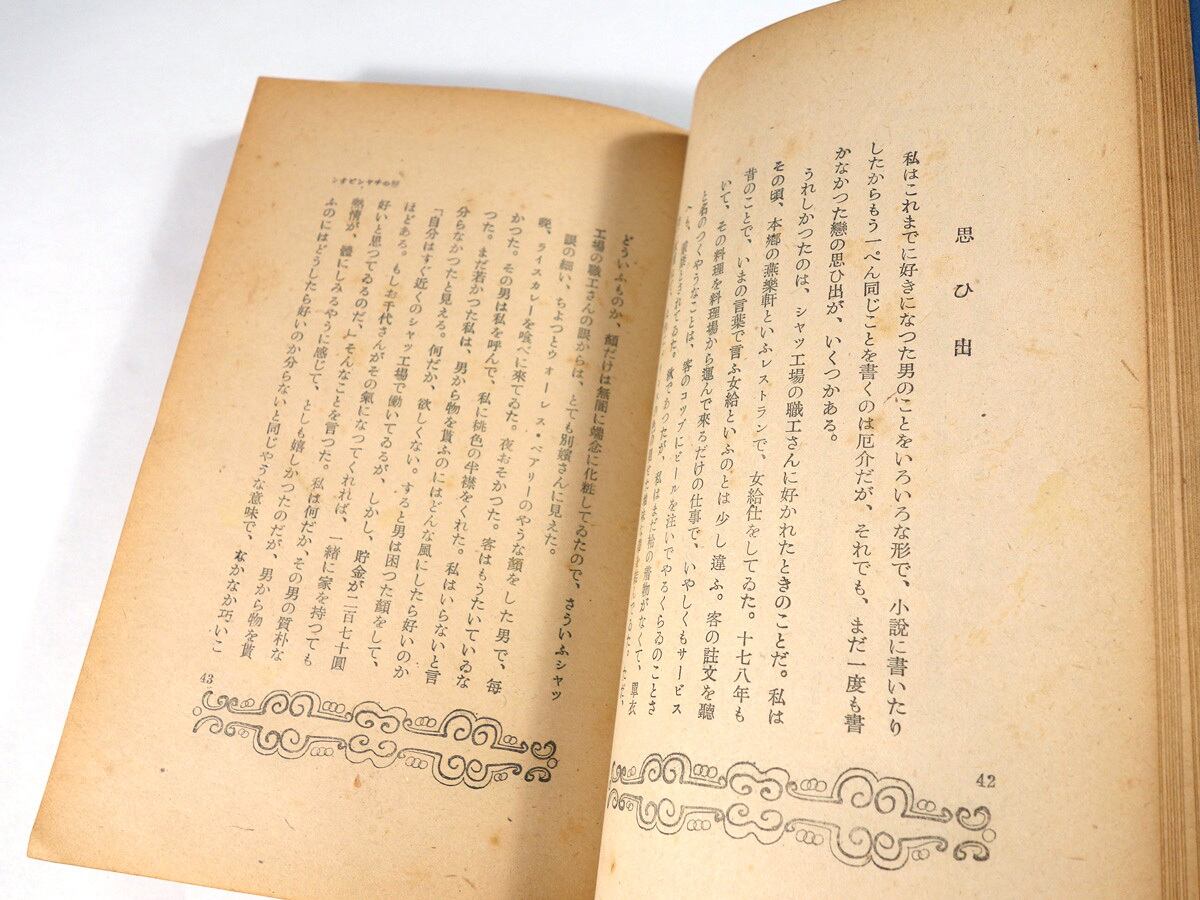 思ひ出
私はこれまでに好きになつた男のことをいろいろな形で、小說に書いたり
したからもう一ぺん同じことを書くのは厄介だが、それでも、まだ一度も書
かなかつた戀の思ひ出が、いくつかある。
うれしかつたのは、シャツ工場の職工さんに好かれたときのことだ。私は
その頃、本鄕の燕樂軒といふレストランで、女給仕をしてゐた。十七八年も
昔のことで、いまの言葉で言ふ女給といふのとは少し違ふ。客の註文を聽
いて、その料理を料理場から運んで來るだけの仕事で、いやしくもサービス
と名のつくやうなことは、客のコップにビールを注いでやるくらゐのことさ
へも、嚴禁とされてゐた。秋であつたが、私はまだ袷の着物がなくて、單衣
てゐた。ただ、
42
どういふものか、顏だけは無闇に端念に化粧してゐたので、さういふシャツ
工場の職工さんの眼からは、とても別嬪さんに見えた。
眼の細い、ちよつとウォーレス・ベアリーのやうな顏をした男で、每
晚、ライスカレーを喰べに來てゐた。夜おそかつた。客はもうたいていゐな
かつた。その男は私を呼んで、私に桃色の半襟をくれた。私はいらないと言
つた。まだ若かつた私は、男から物を貰ふのにはどんな風にしたら好いのか
分らなかつたと見える。何だか、欲しくない。すると男は困つた顏をして、
「自分はすぐ近くのシャツ工場で働いてゐるが、しかし、貯金が二百七十圓
ほどある。もしお千代さんがその氣になつてくれれば、一緖に家を持つても
好いと思つてゐるのだ、」そんなことを言つた。私は何だか、その男の質朴な
熱情が、體にしみるやうに感じて、とても嬉しかつたのだが、男から物を貰
ふのにはどうしたら好いのか分らないと同じやうな意味で、なかなか巧いこ
43